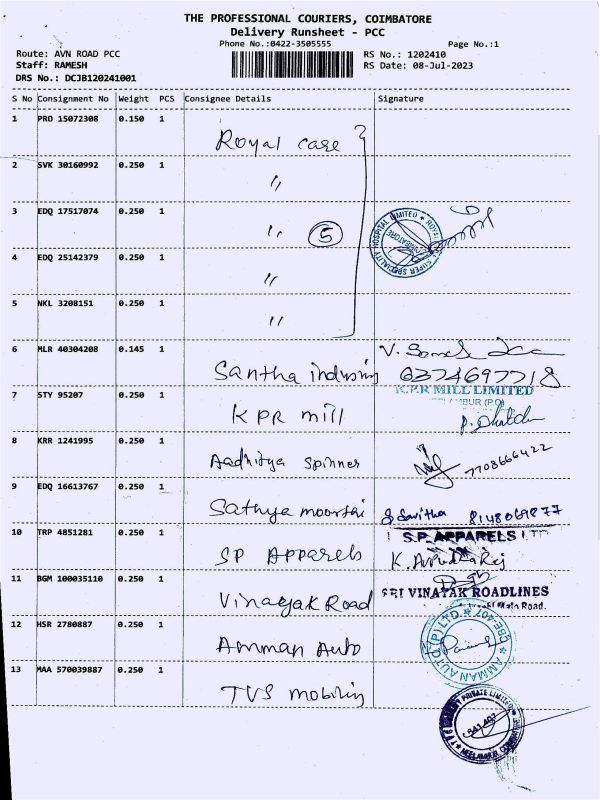 THE PROFESSIONAL COURIERS, COIMBATORE
Delivery Runsheet - PCC
Phone No.:0422-3505555 Page No.:1
Route: AVN ROAD PCC RS No.: 1202410
Staff: RAMESH RS Date: 08-Jul-2023
DRS No.: DCJB120241001
S No Consignment No Weight PCS Consignee Details Signature
1 PRO 15072308 0.150 1 Royal care
2 SVK 30160992 0.250 1 "
3 EDQ 17517074 0.250 1 " 5
4 EDQ 25142379 0.250 1 "
5 NKL 3208151 0.250 1 "
6 MLR 40304208 0.145 1 Santha
6374697718
7 STY 95207 0.250 1 KPR mill K.P.R MILL LIMITED
8 KRR 1241995 0.250 1 Aadhitya spinner 7708666422
9 EDQ 16613767 0.250 1 Sathya Savitha 8148069877
10 TRP 4851281 0.250 1 SP Apparels S.P. APPARELS LTD
11 BGM 100035110 0.250 1 Vinayak Road SRI VINAYAK ROADLINES
Main Road.
12 HSR 2780887 0.250 1 Amman Auto AMMAN AUTO (P) LTD. CBE-407
13 MAA 570039887 0.250 1 TVS PRIVATE LIMITED